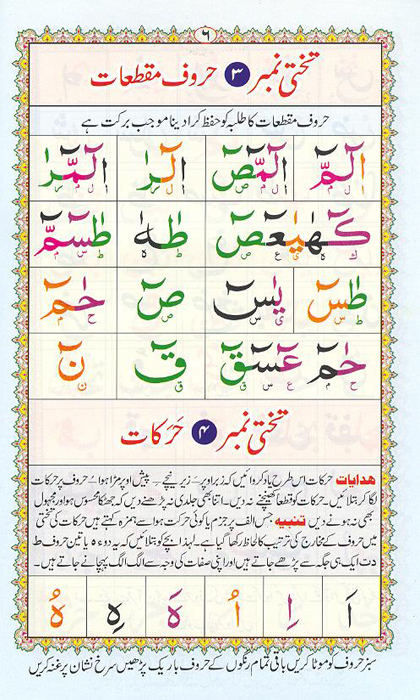 ٦
تختی نمبر ۳ حروف مقطعات
حروف مقطعات کا طلبہ کو حفظ کرا دینا موجب برکت ہے
الٓمّٓ الٓمّٓصٓ الٓرٰ الٓمّٓرٰ
كٓهٰيٰعٓصٓ طٰهٰ طٰسٓمّٓ
طٰسٓ يٰسٓ صٓ حٰمٓ
حٰمٓ عٓسٓقٓ قٓ نٓ
تختی نمبر ۴ حَرَکات
ھدایات حرکات اس طرح یاد کروائیں کہ زبر اوپر۔ زیر نیچے۔ پیش اوپر مڑا ہوا۔ حروف پر حرکات
لگا کر بتلائیں۔ حرکات کو قطعاً کھینچنے نہ دیں۔ اتنا بھی جلدی نہ پڑھنے دیں کہ جھٹکا محسوس ہو اور مجہول
بھی نہ ہونے دیں تنبیہ جس الف پر جزم یا کوئی حرکت ہو اسے ہمزہ کہتے ہیں حرکات کی تختی
میں حروف کے مخارج کی ترتیب کا لحاظ رکھا گیا ہے۔ لہذا بچے کو بتلائیں کہ یہ دو ء ہ یا تین حروف ط
د ت ایک ہی جگہ سے پڑھے جاتے ہیں اور اپنی صفات کی وجہ سے الگ الگ پہچانے جاتے ہیں۔
اَ اِ اُ هَ هِ هُ
سبز حروف کو موٹا کریں باقی تمام رنگوں کے حروف باریک پڑھیں سرخ نشان پر غنہ کریں